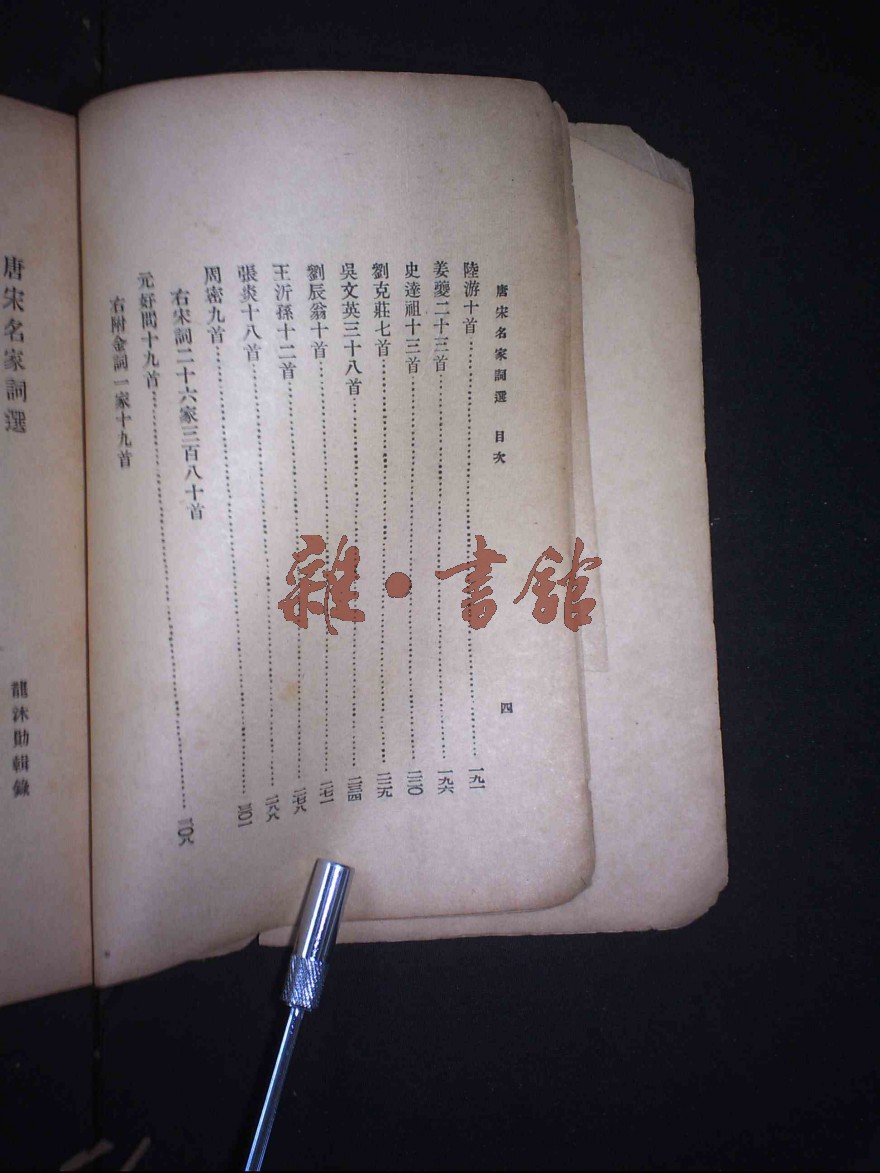 唐宋名家詞選 目次 四
陸游十首……一九一
姜夔二十三首……一九六
史達祖十三首……二二〇
劉克莊七首……二二九
吳文英三十八首……二三四
劉辰翁十首……二七一
王沂孫十二首……二七八
張炎十八首……二八八
周密九首……三〇一
右宋詞二十六家三百八十首
元好問十九首……三〇八
右附金詞一家十九首
唐宋名家詞選
龍沐勛輯錄
雜·書館